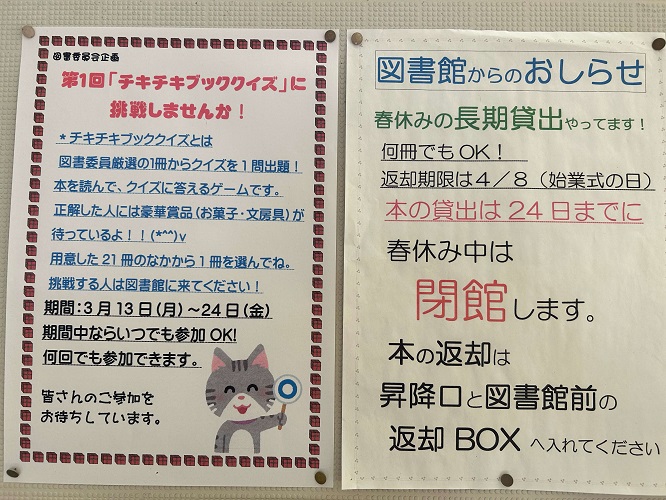 図書委員会企画
第1回「チキチキブッククイズ」に
挑戦しませんか！
*チキチキブッククイズとは
図書委員厳選の1冊からクイズを1問出題！
本を読んで、クイズに答えるゲームです。
正解した人には豪華賞品（お菓子・文房具）が
待っているよ！！(*^^)v
用意した21冊のなかから1冊を選んでね。
挑戦する人は図書館に来てください！
期間：3月13日（月）～24日（金）
期間中ならいつでも参加OK!
何回でも参加できます。
皆さんのご参加を
お待ちしています。
図書館からのおしらせ
春休みの長期貸出やってます！
何冊でもOK！
返却期限は4／8（始業式の日）
本の貸出は24日までに
春休み中は
閉館します。
本の返却は
昇降口と図書館前の
返却BOXへ入れてください